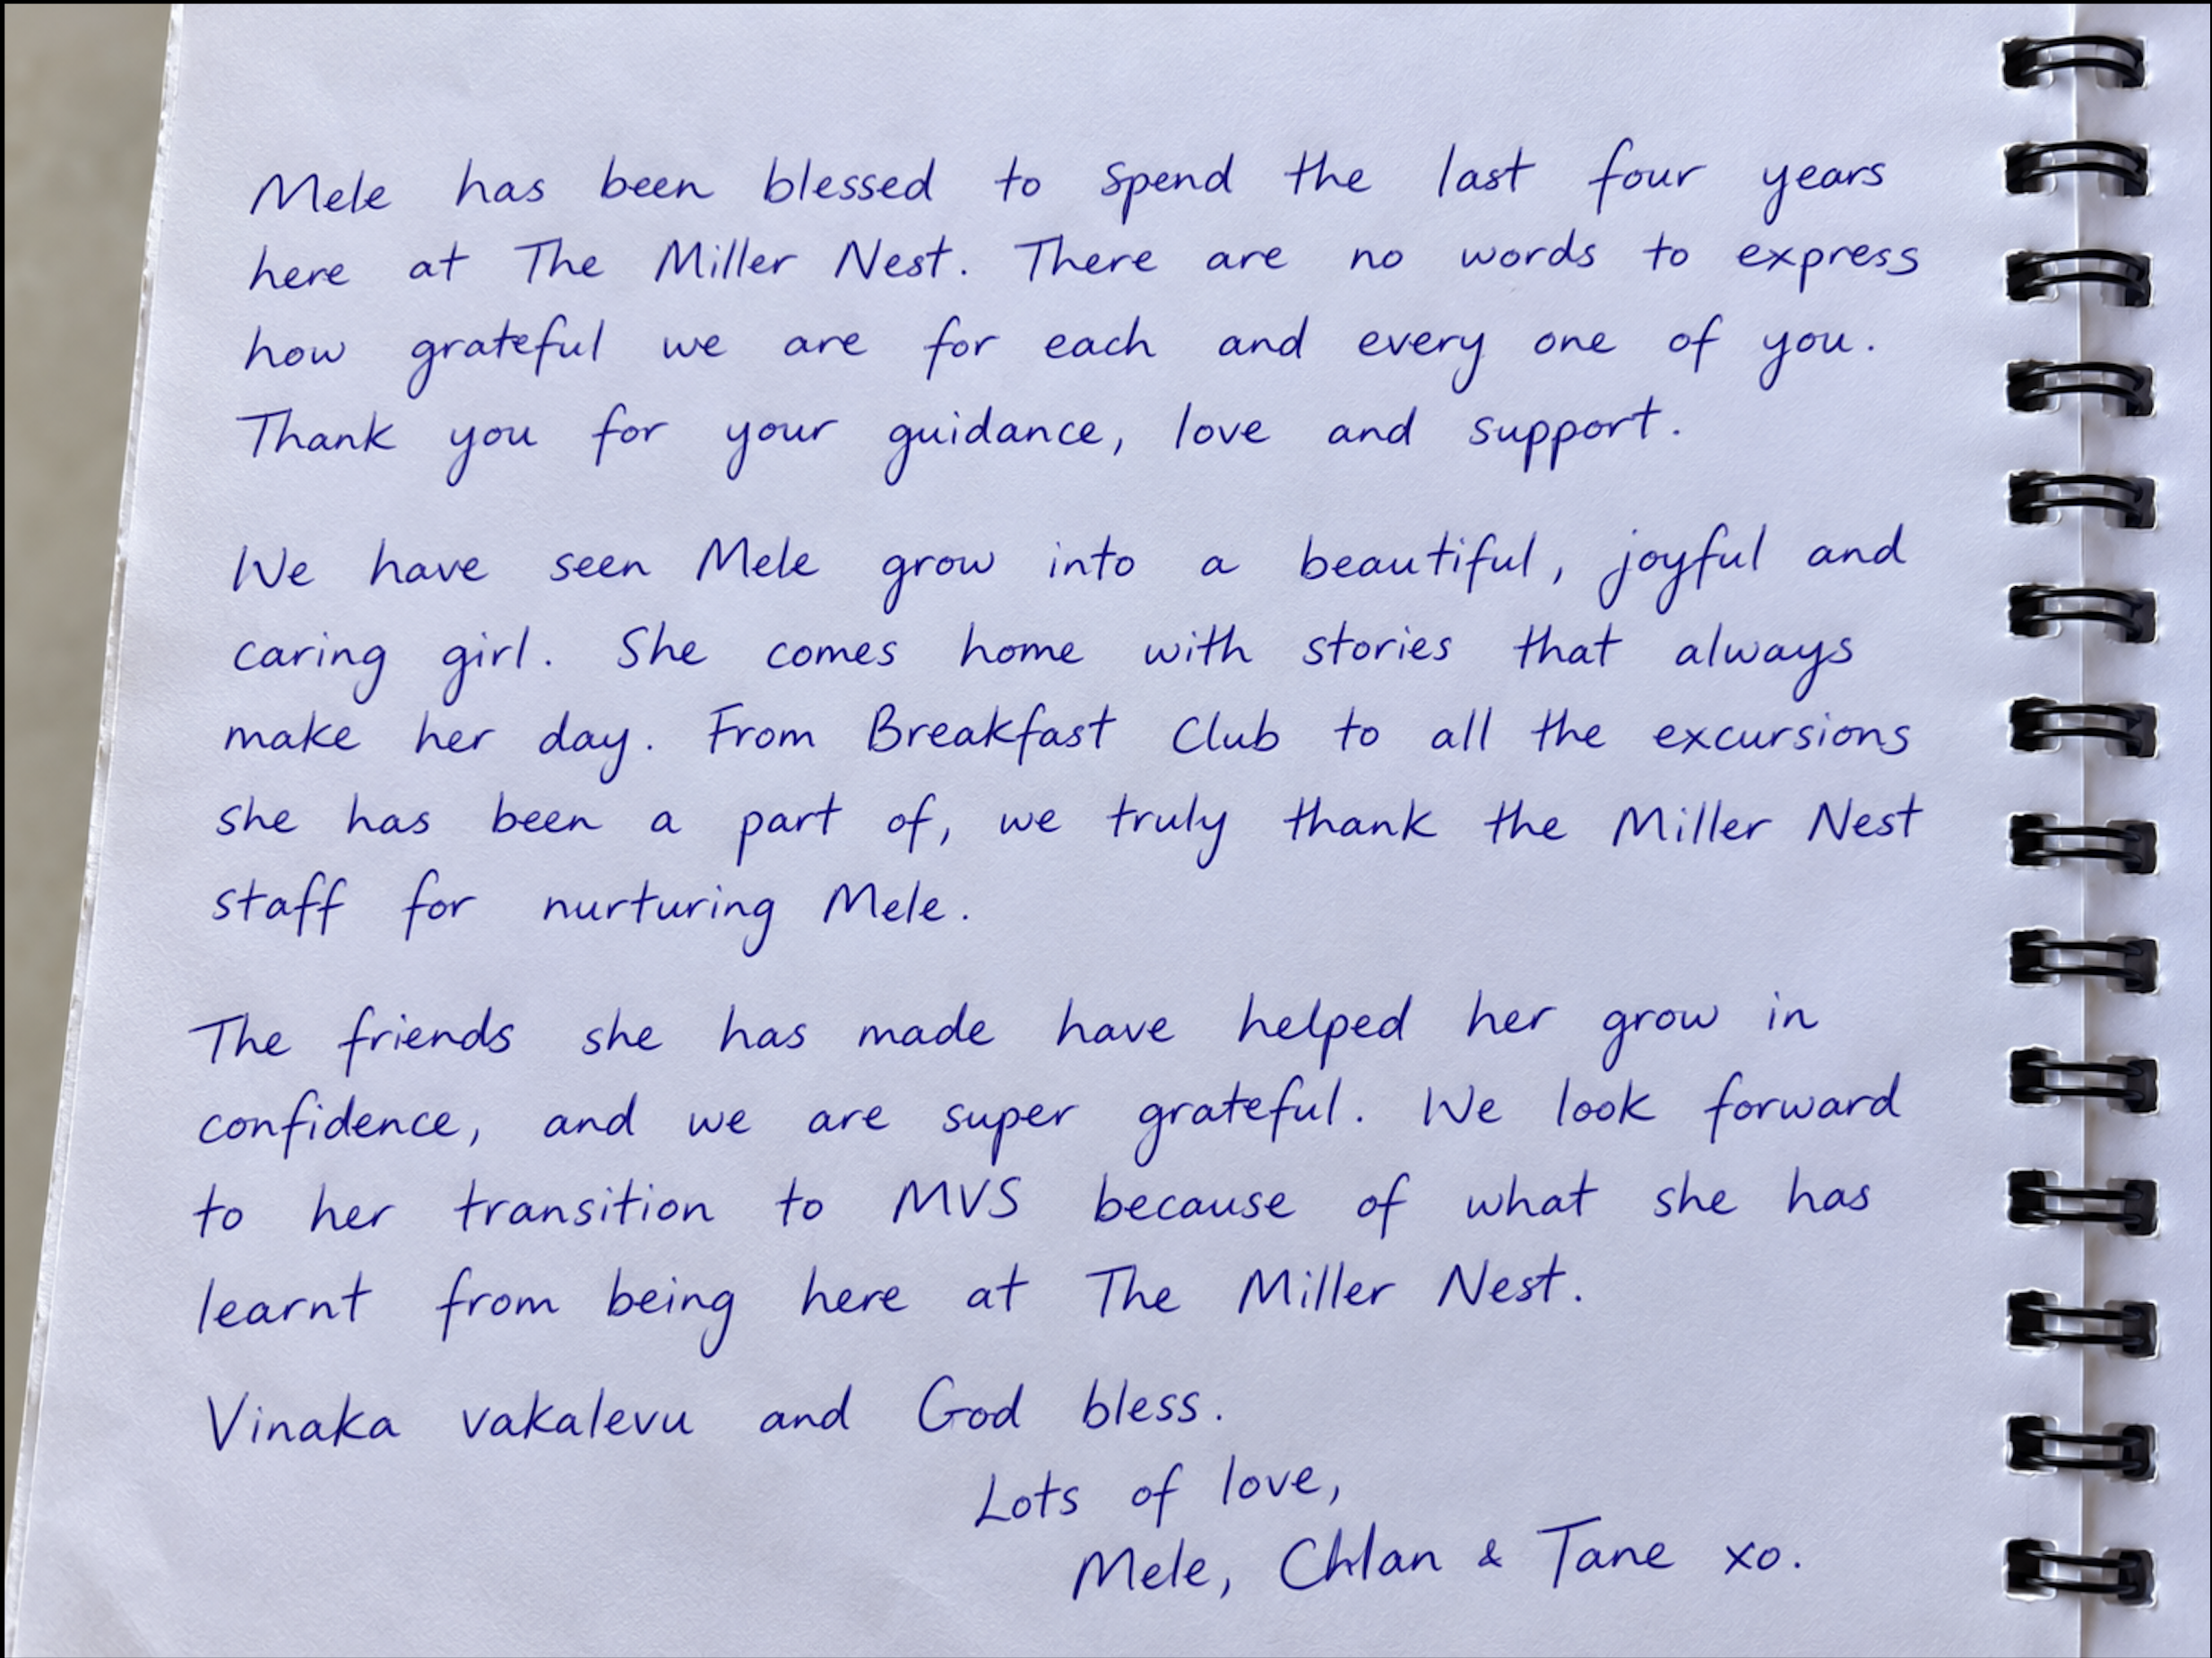 Mele has been blessed to spend the last four years
here at The Miller Nest. There are no words to express
how grateful we are for each and every one of you.
Thank you for your guidance, love and support.
We have seen Mele grow into a beautiful, joyful and
caring girl. She comes home with stories that always
make her day. From Breakfast Club to all the excursions
she has been a part of, we truly thank the Miller Nest
staff for nurturing Mele.
The friends she has made have helped her grow in
confidence, and we are super grateful. We look forward
to her transition to MVS because of what she has
learnt from being here at The Miller Nest.
Vinaka vakalevu and God bless.
Lots of love,
Mele, & Tane xo.